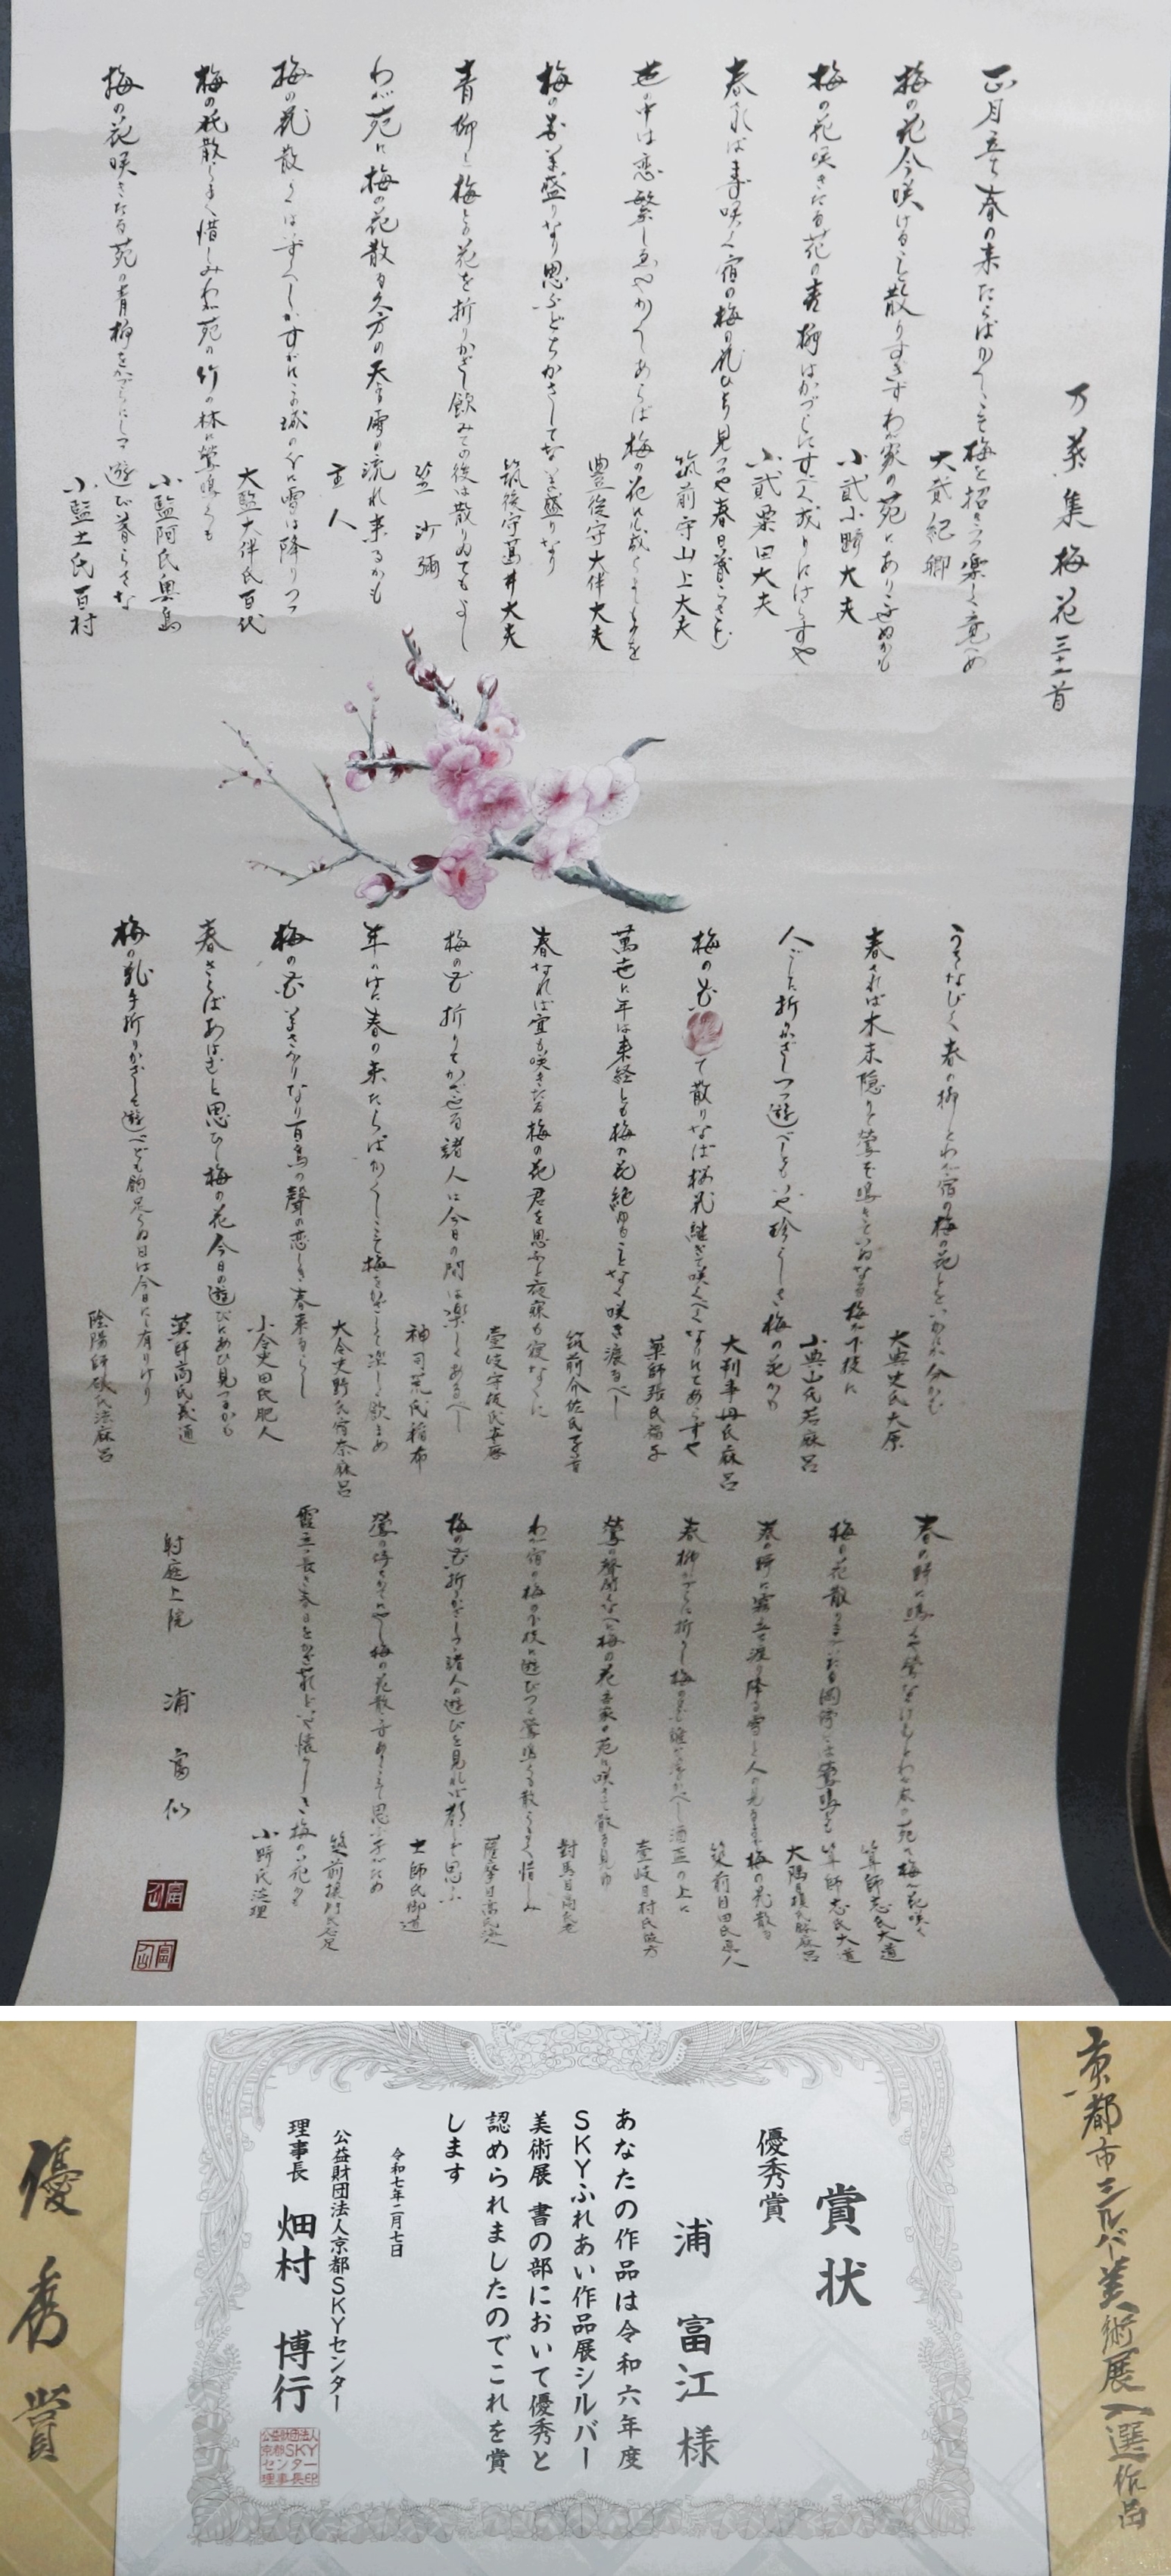 万葉集梅花三十二首
正月立ち春の来たらばかくしこそ梅を招きつつ楽しく竟へめ
大貳紀卿
梅の花今咲けるごと散りすぎずわが家の苑にありこせぬかも
小貳小野大夫
梅の花咲きたる苑の青柳はかづらにすべく成りにけらずや
小貳粟田大夫
春さればまづ咲く宿の梅の花ひとり見つつや春日暮らさむ
筑前守山上大夫
世の中は恋繁しゑやかくしあらば梅の花にも成らましものを
豊後守大伴大夫
梅の花今盛りなり思ふどちかざしてな今盛りなり
筑後守葛井大夫
青柳と梅との花を折りかざし飲みての後は散りぬともよし
笠沙彌
わが苑に梅の花散る久方の天より雪の流れ来るかも
主人
梅の花散らくはいづくしかすがにこの城の山に雪は降りつつ
大監大伴氏百代
梅の花散らまく惜しみわが苑の竹の林に鶯鳴くも
小監阿氏奥島
梅の花咲きたる苑の青柳をかづらにしつつ遊び暮らさな
小監土氏百村
うちなびく春の柳とわが宿の梅の花とをいかにか分かむ
大典史氏大原
春されば木末隠りて鶯そ鳴きていぬなる梅が下枝に
小典山氏若麻呂
人ごとに折りかざしつつ遊べどもいや珍らしき梅の花かも
大判事丹氏麻呂
梅の花
て散りなば桜花継ぎて咲くべくなりにてあらずや
薬師張氏福子
萬世に年は来経とも梅の花絶ゆることなく咲き渡るべし
筑前介佐氏子首
春なれば宜も咲きたる梅の花君を思ふと夜寐も寝なくに
壹岐守板氏安麻呂
梅の花折りてかざせる諸人は今日の間は楽しくあるべし
神司荒氏稲布
年のはに春の来たらばかくしこそ梅をかざして楽しく飲まめ
大令史野氏宿奈麻呂
梅の花今さかりなり百鳥の聲の恋しき春来るらし
小令史田氏肥人
春さらばあはむと思ひし梅の花今日の遊びにあひ見つるかも
薬師高氏義通
梅の花手折りかざして遊べども飽足らぬ日は今日にし有りけり
陰陽師礒氏法麻呂
春の野に鳴くや鶯なつけむとわが家の苑に梅が花咲く
算師志氏大道
梅の花散りまがひたる岡傍には鶯鳴くも
大隅目榎氏鉢麻呂
春の野に霧立ち渡り降る雪と人の見るまで梅の花散る
筑前目田氏真人
春柳かづらに折りし梅の花誰か浮かべし酒盃の上に
壹岐目村氏彼方
鶯の聲聞くなへに梅の花吾家の苑に咲きて散る見ゆ
對馬目高氏老
わが宿の梅の下枝に遊びつつ鶯鳴くも散らまく惜しみ
薩摩目高氏海人
梅の花折りかざしつつ諸人の遊ぶを見れば都しぞ思ふ
土師氏御道
鶯の待ちかてにせし梅の花散らずありこそ思ふ子がため
筑前掾門氏石足
霞立つ長き春日をかざせれどいや懐かしき梅の花かも
小野氏淡理
射庭上院 浦富仙
京都市シルバー美術展入選作品
優秀賞
賞状
優秀賞
浦 富江 様
あなたの作品は令和六年度
SKYふれあい作品展シルバー
美術展 書の部において優秀と
認められましたのでこれを賞
します
令和七年二月七日
公益財団法人京都SKYセンター
理事長 畑村 博行
公益財団法人
京都SKY
センター
理事長印